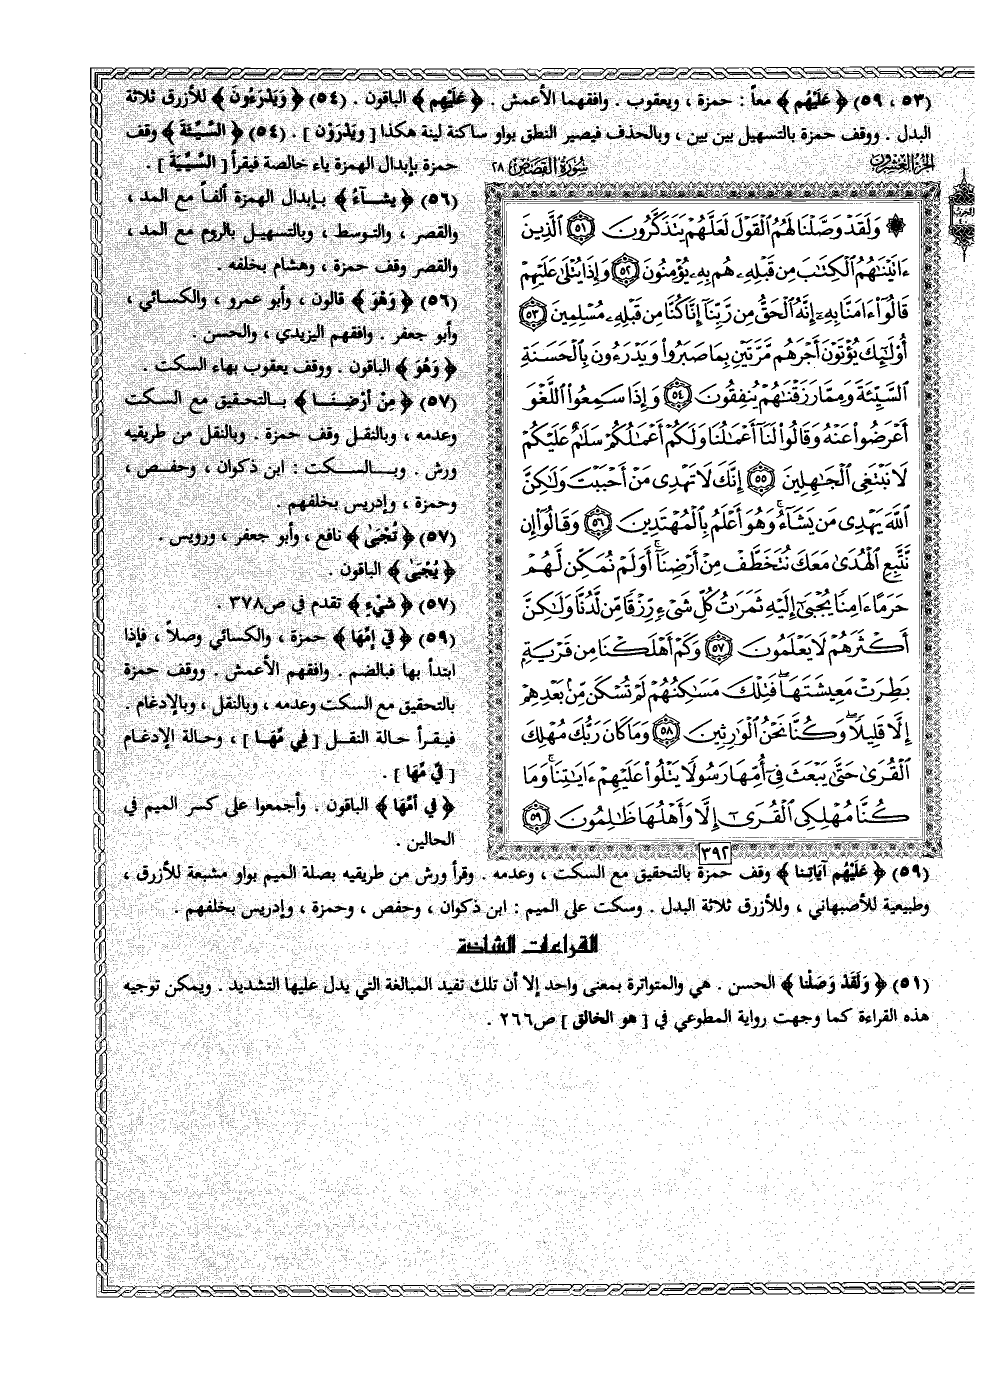 (٥٣ ، ٥٩) ﴿ عَلَيْهُم ﴾ معاً : حمزة ، ويعقوب . وافقهما الأعمش . ﴿ عَلَيْهِم ﴾ الباقون . (٥٤) ﴿ وَيَدْرَءُونَ ﴾ للأزرق ثلاثة
البدل . ووقف حمزة بالتسهيل بين بين ، وبالحذف فيصير النطق بواو ساكنة لينة هكذا [ ويَدْرَوْن ] . (٥٤) ﴿ السَّيِّئَةَ ﴾ وقف
حمزة بإبدال الهمزة ياء خالصة فيقرأ [ السَّيِّيَة ] .
(٥٦) ﴿ يشـآءُ ﴾ بإبدال الهمزة ألفاً مع المد ،
والقصر ، والتوسط ، وبالتسهيل بالروم مع المد ،
والقصر وقف حمزة ، وهشام بخلفه .
(٥٦) ﴿ وَهْوَ ﴾ قالون ، وأبو عمرو ، والكسائي ،
وأبو جعفر . وافقهم اليزيدي ، والحسن .
﴿ وَهُوَ ﴾ الباقون . ووقف يعقوب بهاء السكت .
(٥٧) ﴿ مِنْ أَرْضِنَـا ﴾ بـالتحقيق مع السكت
وعدمه ، وبالنقل وقف حمزة . وبالنقل من طريقيه
ورش . وبـالسكت : ابن ذكوان ، وحفص ،
وحمزة ، وإدريس بخلفهم .
(٥٧) ﴿ تُجْبَىٰ ﴾ نافع ، وأبو جعفر ، ورويس .
﴿ يُجْبَىٰ ﴾ الباقون .
(٥٧) ﴿ شَيْءٍ ﴾ تقدم في ص٣٧٨ .
(٥٩) ﴿ فِي إِمِّهَا ﴾ حمزة ، والكسائي وصلاً ، فإذا
ابتدأ بها فبالضم . وافقهم الأعمش . ووقف حمزة
بالتحقيق مع السكت وعدمه ، وبالنقل ، وبالإدغام .
فيقرأ حالة النقل [ فِي مِّهَـا ] ، وحالة الإدغام
[ فِيِّ مِّهَا ] .
﴿ فِي أُمِّهَا ﴾ الباقون . وأجمعوا على كسر الميم في
الحالين .
الجزء العشرون
سُورَةُ القَصَصِ ٢٨
۞ وَلَقَدْ وَصَّلْنَا لَهُمُ الْقَوْلَ لَعَلَّهُمْ يَتَذَكَّرُونَ ٥١ الَّذِينَ
ءَاتَيْنَٰهُمُ الْكِتَٰبَ مِن قَبْلِهِۦ هُم بِهِۦ يُؤْمِنُونَ ٥٢ وَإِذَا يُتْلَىٰ عَلَيْهِمْ
قَالُوٓا۟ ءَامَنَّا بِهِۦٓ إِنَّهُ الْحَقُّ مِن رَّبِّنَآ إِنَّا كُنَّا مِن قَبْلِهِۦ مُسْلِمِينَ ٥٣
أُو۟لَٰٓئِكَ يُؤْتَوْنَ أَجْرَهُم مَّرَّتَيْنِ بِمَا صَبَرُوا۟ وَيَدْرَءُونَ بِالْحَسَنَةِ
السَّيِّئَةَ وَمِمَّا رَزَقْنَٰهُمْ يُنفِقُونَ ٥٤ وَإِذَا سَمِعُوا۟ اللَّغْوَ
أَعْرَضُوا۟ عَنْهُ وَقَالُوا۟ لَنَآ أَعْمَٰلُنَا وَلَكُمْ أَعْمَٰلُكُمْ سَلَٰمٌ عَلَيْكُمْ
لَا نَبْتَغِى الْجَٰهِلِينَ ٥٥ إِنَّكَ لَا تَهْدِى مَنْ أَحْبَبْتَ وَلَٰكِنَّ
اللَّهَ يَهْدِى مَن يَشَآءُ ۚ وَهُوَ أَعْلَمُ بِالْمُهْتَدِينَ ٥٦ وَقَالُوٓا۟ إِن
نَّتَّبِعِ الْهُدَىٰ مَعَكَ نُتَخَطَّفْ مِنْ أَرْضِنَآ ۚ أَوَلَمْ نُمَكِّن لَّهُمْ
حَرَمًا ءَامِنًا يُجْبَىٰٓ إِلَيْهِ ثَمَرَٰتُ كُلِّ شَىْءٍ رِّزْقًا مِّن لَّدُنَّا وَلَٰكِنَّ
أَكْثَرَهُمْ لَا يَعْلَمُونَ ٥٧ وَكَمْ أَهْلَكْنَا مِن قَرْيَةٍۭ
بَطِرَتْ مَعِيشَتَهَا ۖ فَتِلْكَ مَسَٰكِنُهُمْ لَمْ تُسْكَن مِّنۢ بَعْدِهِمْ
إِلَّا قَلِيلًا ۖ وَكُنَّا نَحْنُ الْوَٰرِثِينَ ٥٨ وَمَا كَانَ رَبُّكَ مُهْلِكَ
الْقُرَىٰ حَتَّىٰ يَبْعَثَ فِىٓ أُمِّهَا رَسُولًا يَتْلُوا۟ عَلَيْهِمْ ءَايَٰتِنَا ۚ وَمَا
كُنَّا مُهْلِكِى الْقُرَىٰٓ إِلَّا وَأَهْلُهَا ظَٰلِمُونَ ٥٩
٣٩٢
(٥٩) ﴿ عَلَيْهُم آيَاتِنا ﴾ وقف حمزة بالتحقيق مع السكت ، وعدمه . وقرأ ورش من طريقيه بصلة الميم بواو مشبعة للأزرق ،
وطبيعية للأصبهاني ، وللأزرق ثلاثة البدل . وسكت على الميم : ابن ذكوان ، وحفص ، وحمزة ، وإدريس بخلفهم .
القراءات الشاذة
(٥١) ﴿ وَلَقَدْ وَصَلْنا ﴾ الحسن . هي والمتواترة بمعنى واحد إلا أن تلك تفيد المبالغة التي يدل عليها التشديد . ويمكن توجيه
هذه القراءة كما وجهت رواية المطوعي في [ هو الخالق ] ص٢٦٦ .